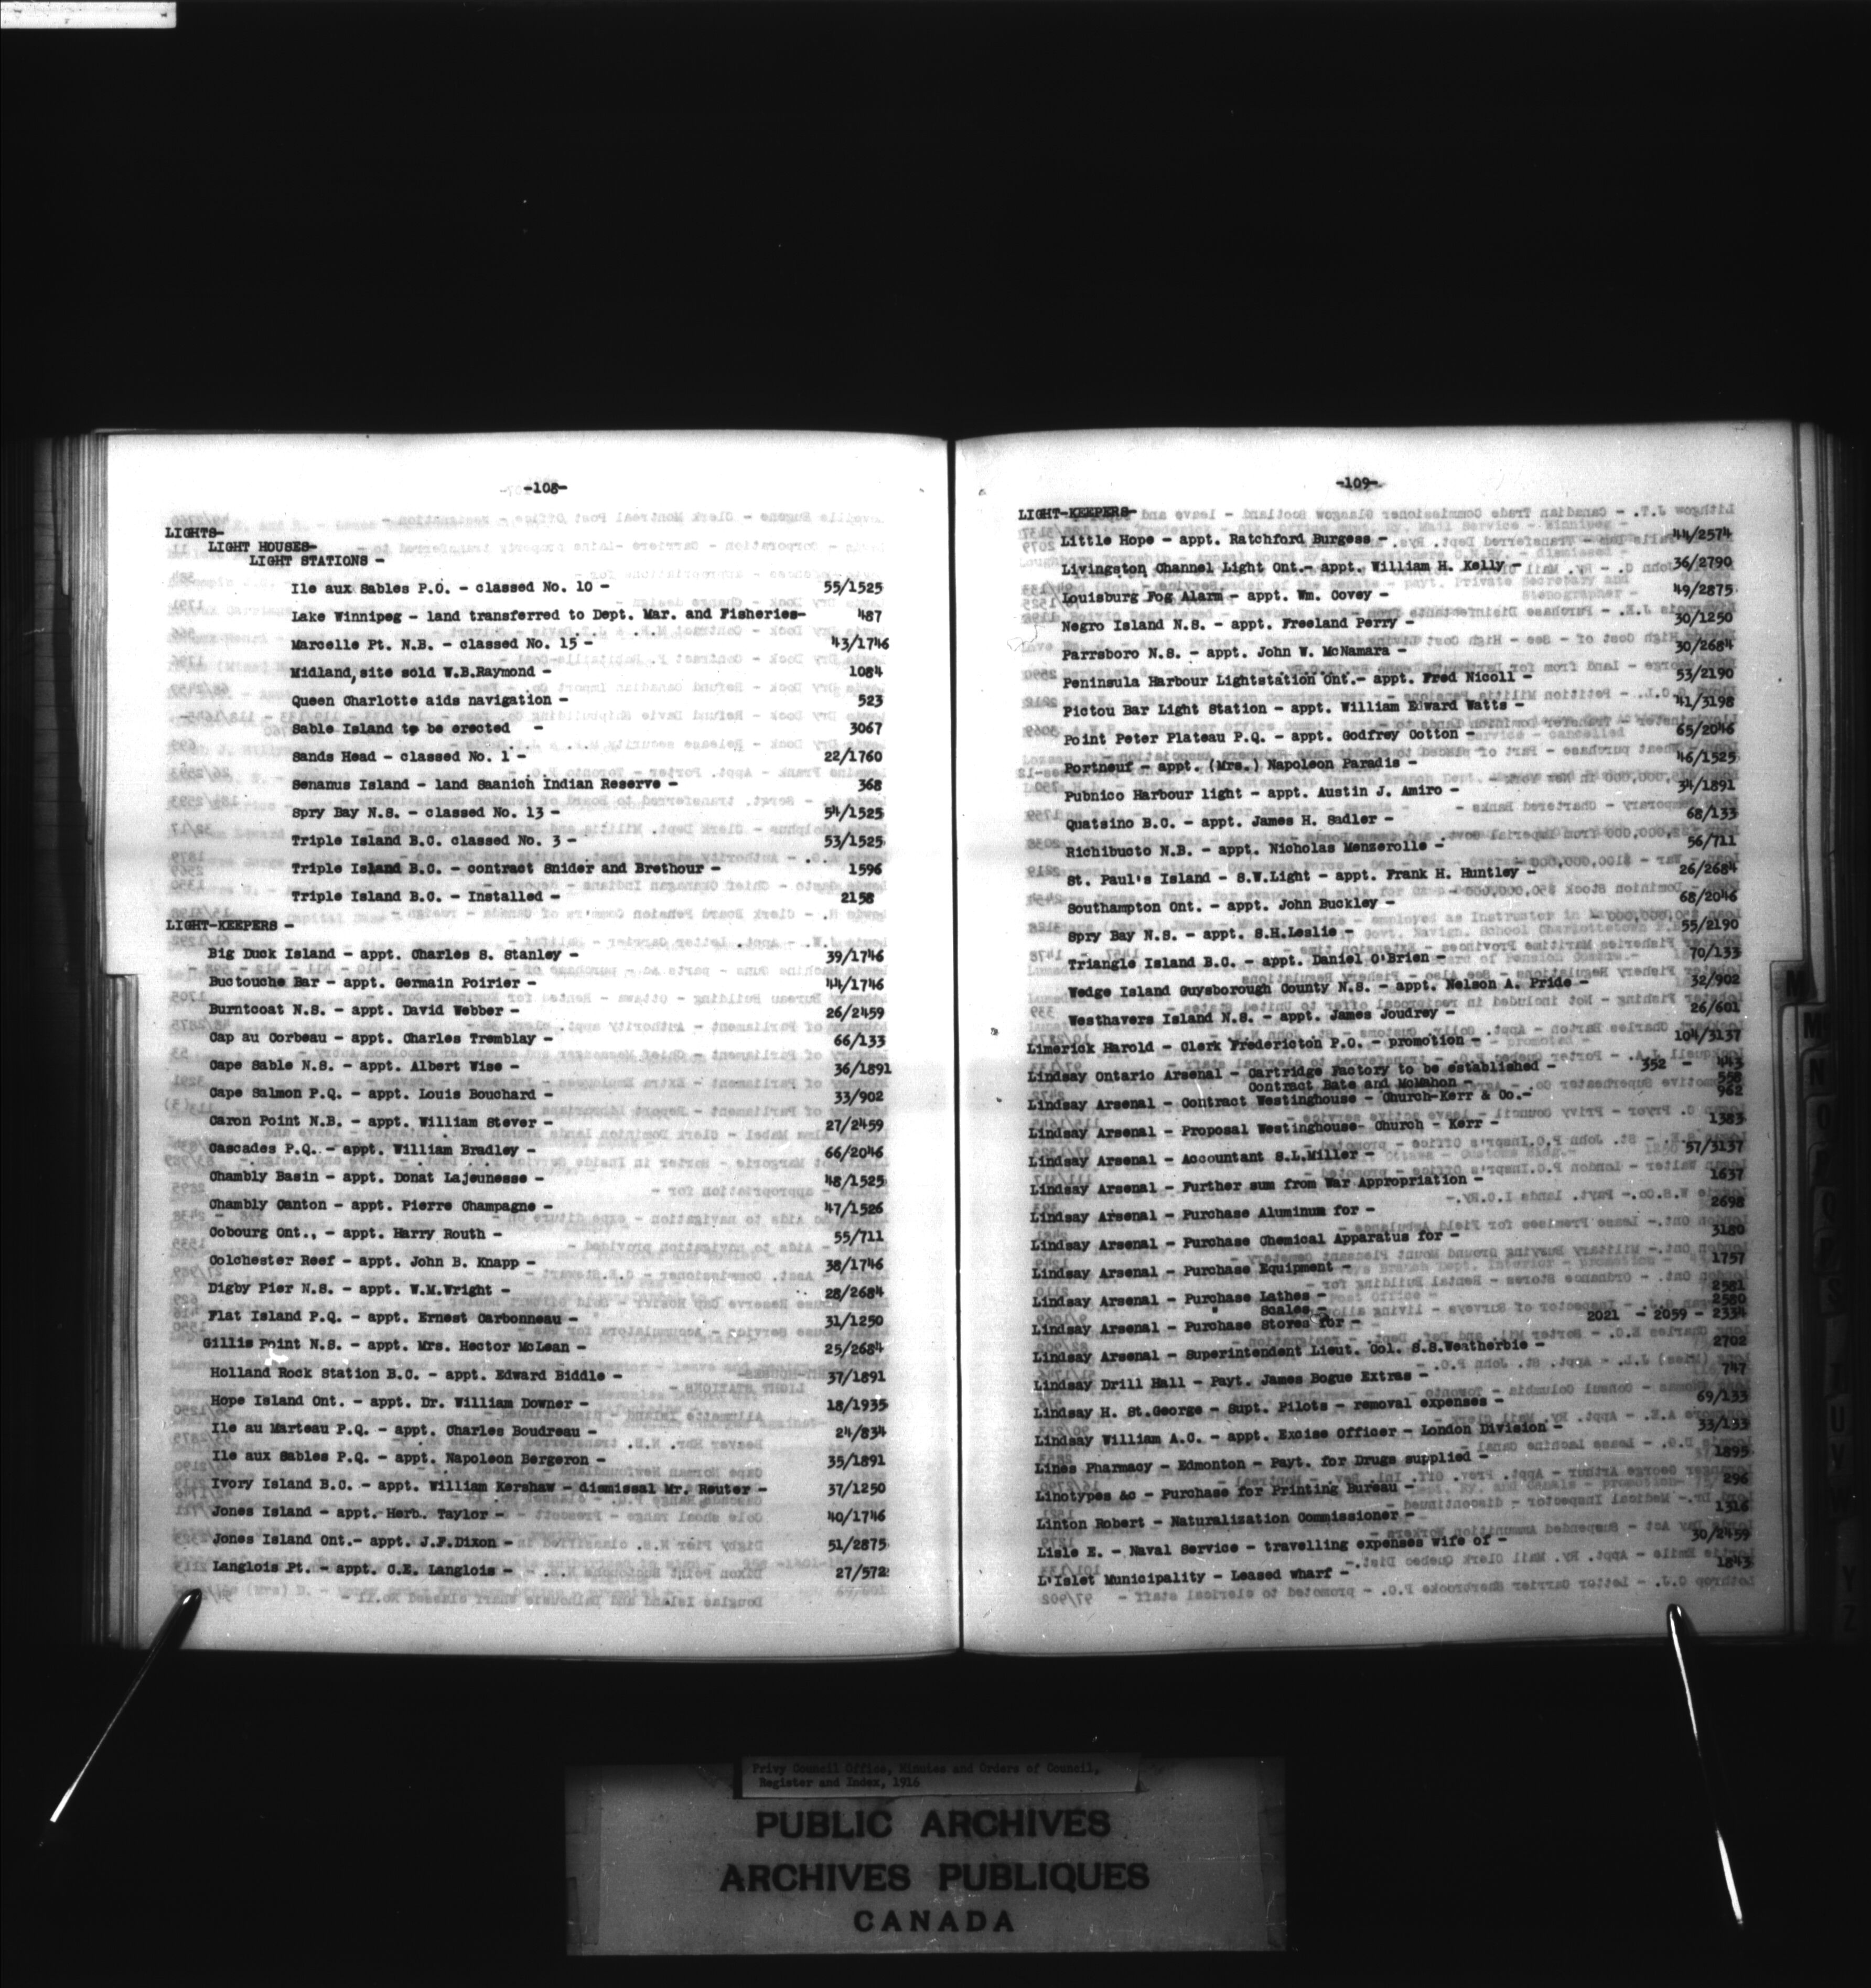 -108-
LIGHTS-
LIGHT HOUSES-
LIGHT STATIONS -
Ile aux Sables P.O. - classed No. 10 - 55/1525
Lake Winnipeg - land transferred to Dept. Mar. and Fisheries- 487
Marcelle Pt. N.B. - classed No. 15 - 43/1746
Midland, site sold W.B.Raymond - 1084
Queen Charlotte aids navigation - 523
Sable Island to be erected - 3067
Sands Head - classed No. 1 - 22/1760
Senanus Island - land Saanich Indian Reserve - 368
Spry Bay N.S. - classed No. 13 - 54/1525
Triple Island B.C. classed No. 3 - 53/1525
Triple Island B.C. - contract Snider and Brethour - 1596
Triple Island B.C. - Installed - 2158
LIGHT-KEEPERS -
Big Duck Island - appt. Charles S. Stanley - 39/1746
Buctouche Bar - appt. Germain Poirier - 44/1746
Burntcoat N.S. - appt. David Webber - 26/2459
Cap au Corbeau - appt. Charles Tremblay - 66/133
Cape Sable N.S. - appt. Albert Wise - 36/1891
Cape Salmon P.Q. - appt. Louis Bouchard - 33/902
Caron Point N.B. - appt. William Stever - 27/2459
Cascades P.Q. - appt. William Bradley - 66/2046
Chambly Basin - appt. Donat Lajeunesse - 48/1525
Chambly Canton - appt. Pierre Champagne - 47/1526
Cobourg Ont., - appt. Harry Routh - 55/711
Colchester Reef - appt. John B. Knapp - 38/1746
Digby Pier N.S. - appt. W.M.Wright - 28/2684
Flat Island P.Q. - appt. Ernest Carbonneau - 31/1250
Gillis Point N.S. - appt. Mrs. Hector McLean - 25/2684
Holland Rock Station B.C. - appt. Edward Biddle - 37/1891
Hope Island Ont. - appt. Dr. William Downer - 18/1935
Ile au Marteau P.Q. - appt. Charles Boudreau - 24/834
Ile aux Sables P.Q. - appt. Napoleon Bergeron - 35/1891
Ivory Island B.C. - appt. William Kershaw - dismissal Mr. Reuter - 37/1250
Jones Island - appt. Herb. Taylor - 40/1746
Jones Island Ont.- appt. J.F.Dixon - 51/2875
Langlois Pt. - appt. C.E. Langlois - 27/572
-109-
LIGHT-KEEPERS-
Little Hope - appt. Ratchford Burgess - 44/2574
Livingston Channel Light Ont.- appt. William H. Kelly - 36/2790
Louisburg Fog Alarm - appt. Wm. Covey - 49/2875
Negro Island N.S. - appt. Freeland Perry - 30/1250
Parrsboro N.S. - appt. John W. McNamara - 30/2684
Peninsula Harbour Lightstation Ont.- appt. Fred Nicoll - 53/2190
Pictou Bar Light Station - appt. William Edward Watts - 41/3198
Point Peter Plateau P.Q. - appt. Godfrey Cotton - 65/2046
Portneuf - appt. (Mrs.) Napoleon Paradis - 46/1525
Pubnico Harbour light - appt. Austin J. Amiro - 34/1891
Quatsino B.C. - appt. James H. Sadler - 68/133
Richibucto N.B. - appt. Nicholas Menzerolle - 56/711
St. Paul's Island - S.W.Light - appt. Frank H. Huntley - 26/2684
Southampton Ont. - appt. John Buckley - 68/2046
Spry Bay N.S. - appt. S.H.Leslie - 55/2190
Triangle Island B.C. - appt. Daniel O'Brien - 70/133
Wedge Island Guysborough County N.S. - appt. Nelson A. Pride - 32/902
Westhavers Island N.S. - appt. James Joudrey - 26/601
Limerick Harold - Clerk Fredericton P.O. - promotion - 104/3137
Lindsay Ontario Arsenal - Cartridge Factory to be established - 352 - 443
Contract Bate and McMahon - 558
Lindsay Arsenal - Contract Westinghouse - Church-Kerr & Co.- 962
Lindsay Arsenal - Proposal Westinghouse- Church - Kerr - 1383
Lindsay Arsenal - Accountant S.L.Miller - 57/3137
Lindsay Arsenal - Further sum from War Appropriation - 1637
Lindsay Arsenal - Purchase Aluminum for - 2698
Lindsay Arsenal - Purchase Chemical Apparatus for - 3180
Lindsay Arsenal - Purchase Equipment - 1757
Lindsay Arsenal - Purchase Lathes - 2581
" Scales - 2580
Lindsay Arsenal - Purchase Stores for - 2021 - 2059 - 2334
Lindsay Arsenal - Superintendent Lieut. Col. S.S.Weatherbie - 2702
Lindsay Drill Hall - Payt. James Bogue Extras - 747
Lindsay H. St.George - Supt. Pilots - removal expenses - 69/133
Lindsay William A.C. - appt. Excise Officer - London Division - 33/133
Lines Pharmacy - Edmonton - Payt. for Drugs supplied - 1895
Linotypes &c - Purchase for Printing Bureau - 296
Linton Robert - Naturalization Commissioner - 1316
Lisle E. - Naval Service - travelling expenses wife of - 30/2459
L'Islet Municipality - Leased wharf - 1843
M
N
Y
Z
Privy Council Office, Minutes and Orders of Council,
Register and Index, 1916
PUBLIC ARCHIVES
ARCHIVES PUBLIQUES
CANADA